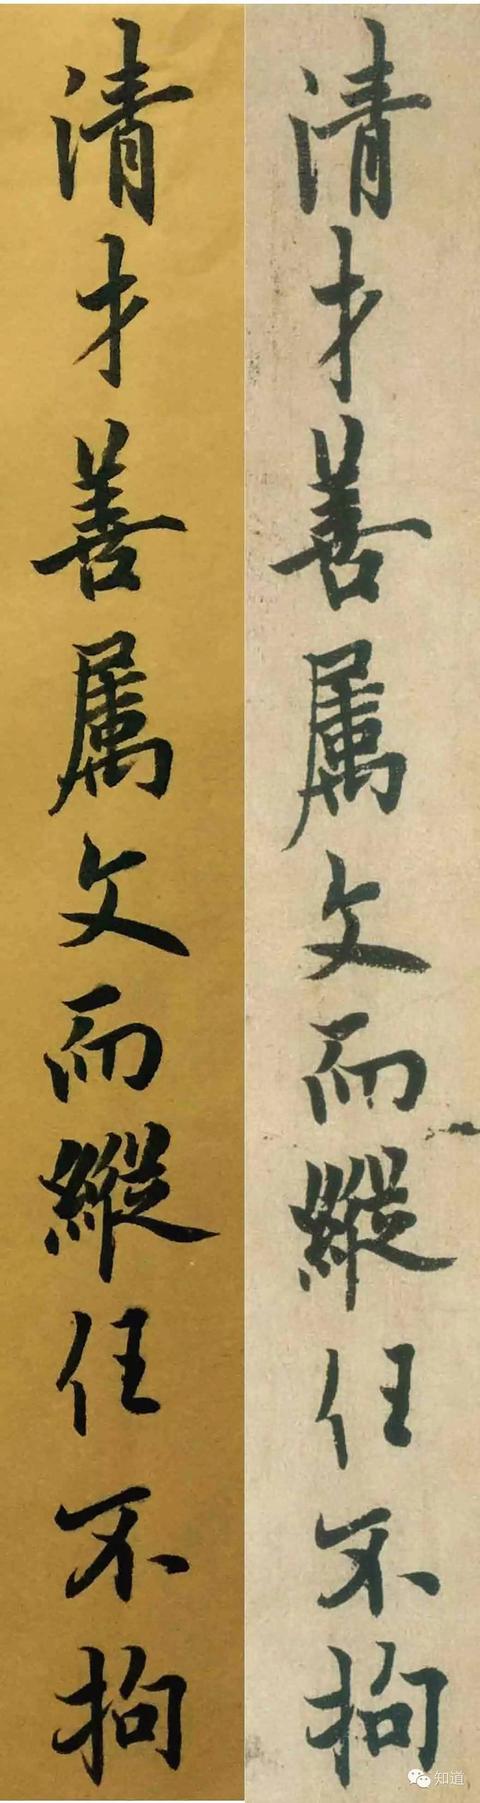 清才善属文而縱任不拘
清才善属文而縱任不拘
知道